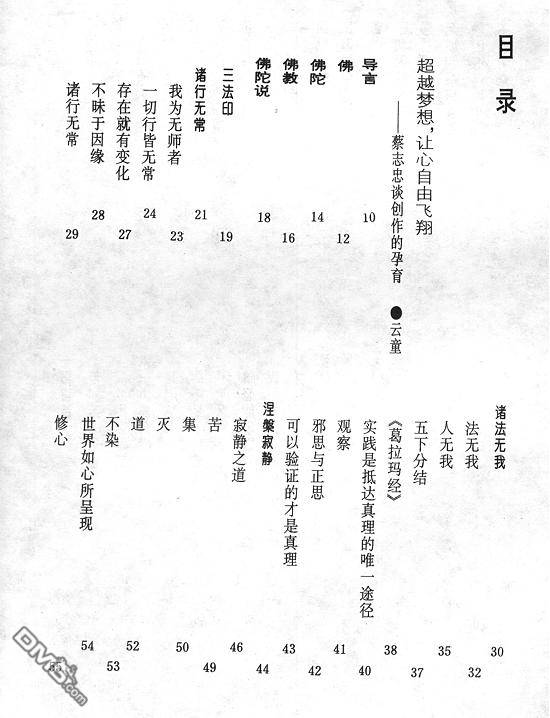 目录
超越梦想，让心自由飞翔
——蔡志忠谈创作的孕育 ●云童
导言 10
佛 12
佛陀 14
佛教 16
佛陀说 18
三法印 19
诸行无常 21
我为无师者 23
一切行皆无常 24
存在就有变化 27
不昧于因缘 28
诸行无常 29
诸法无我 30
法无我 32
人无我 35
五下分结 37
《葛拉玛经》 38
实践是抵达真理的唯一途径 40
观察 41
邪思与正思 42
可以验证的才是真理 43
涅槃寂静 44
寂静之道 46
苦 49
集 50
灭
道 52
不染 53
世界如心所呈现 54
修心 55